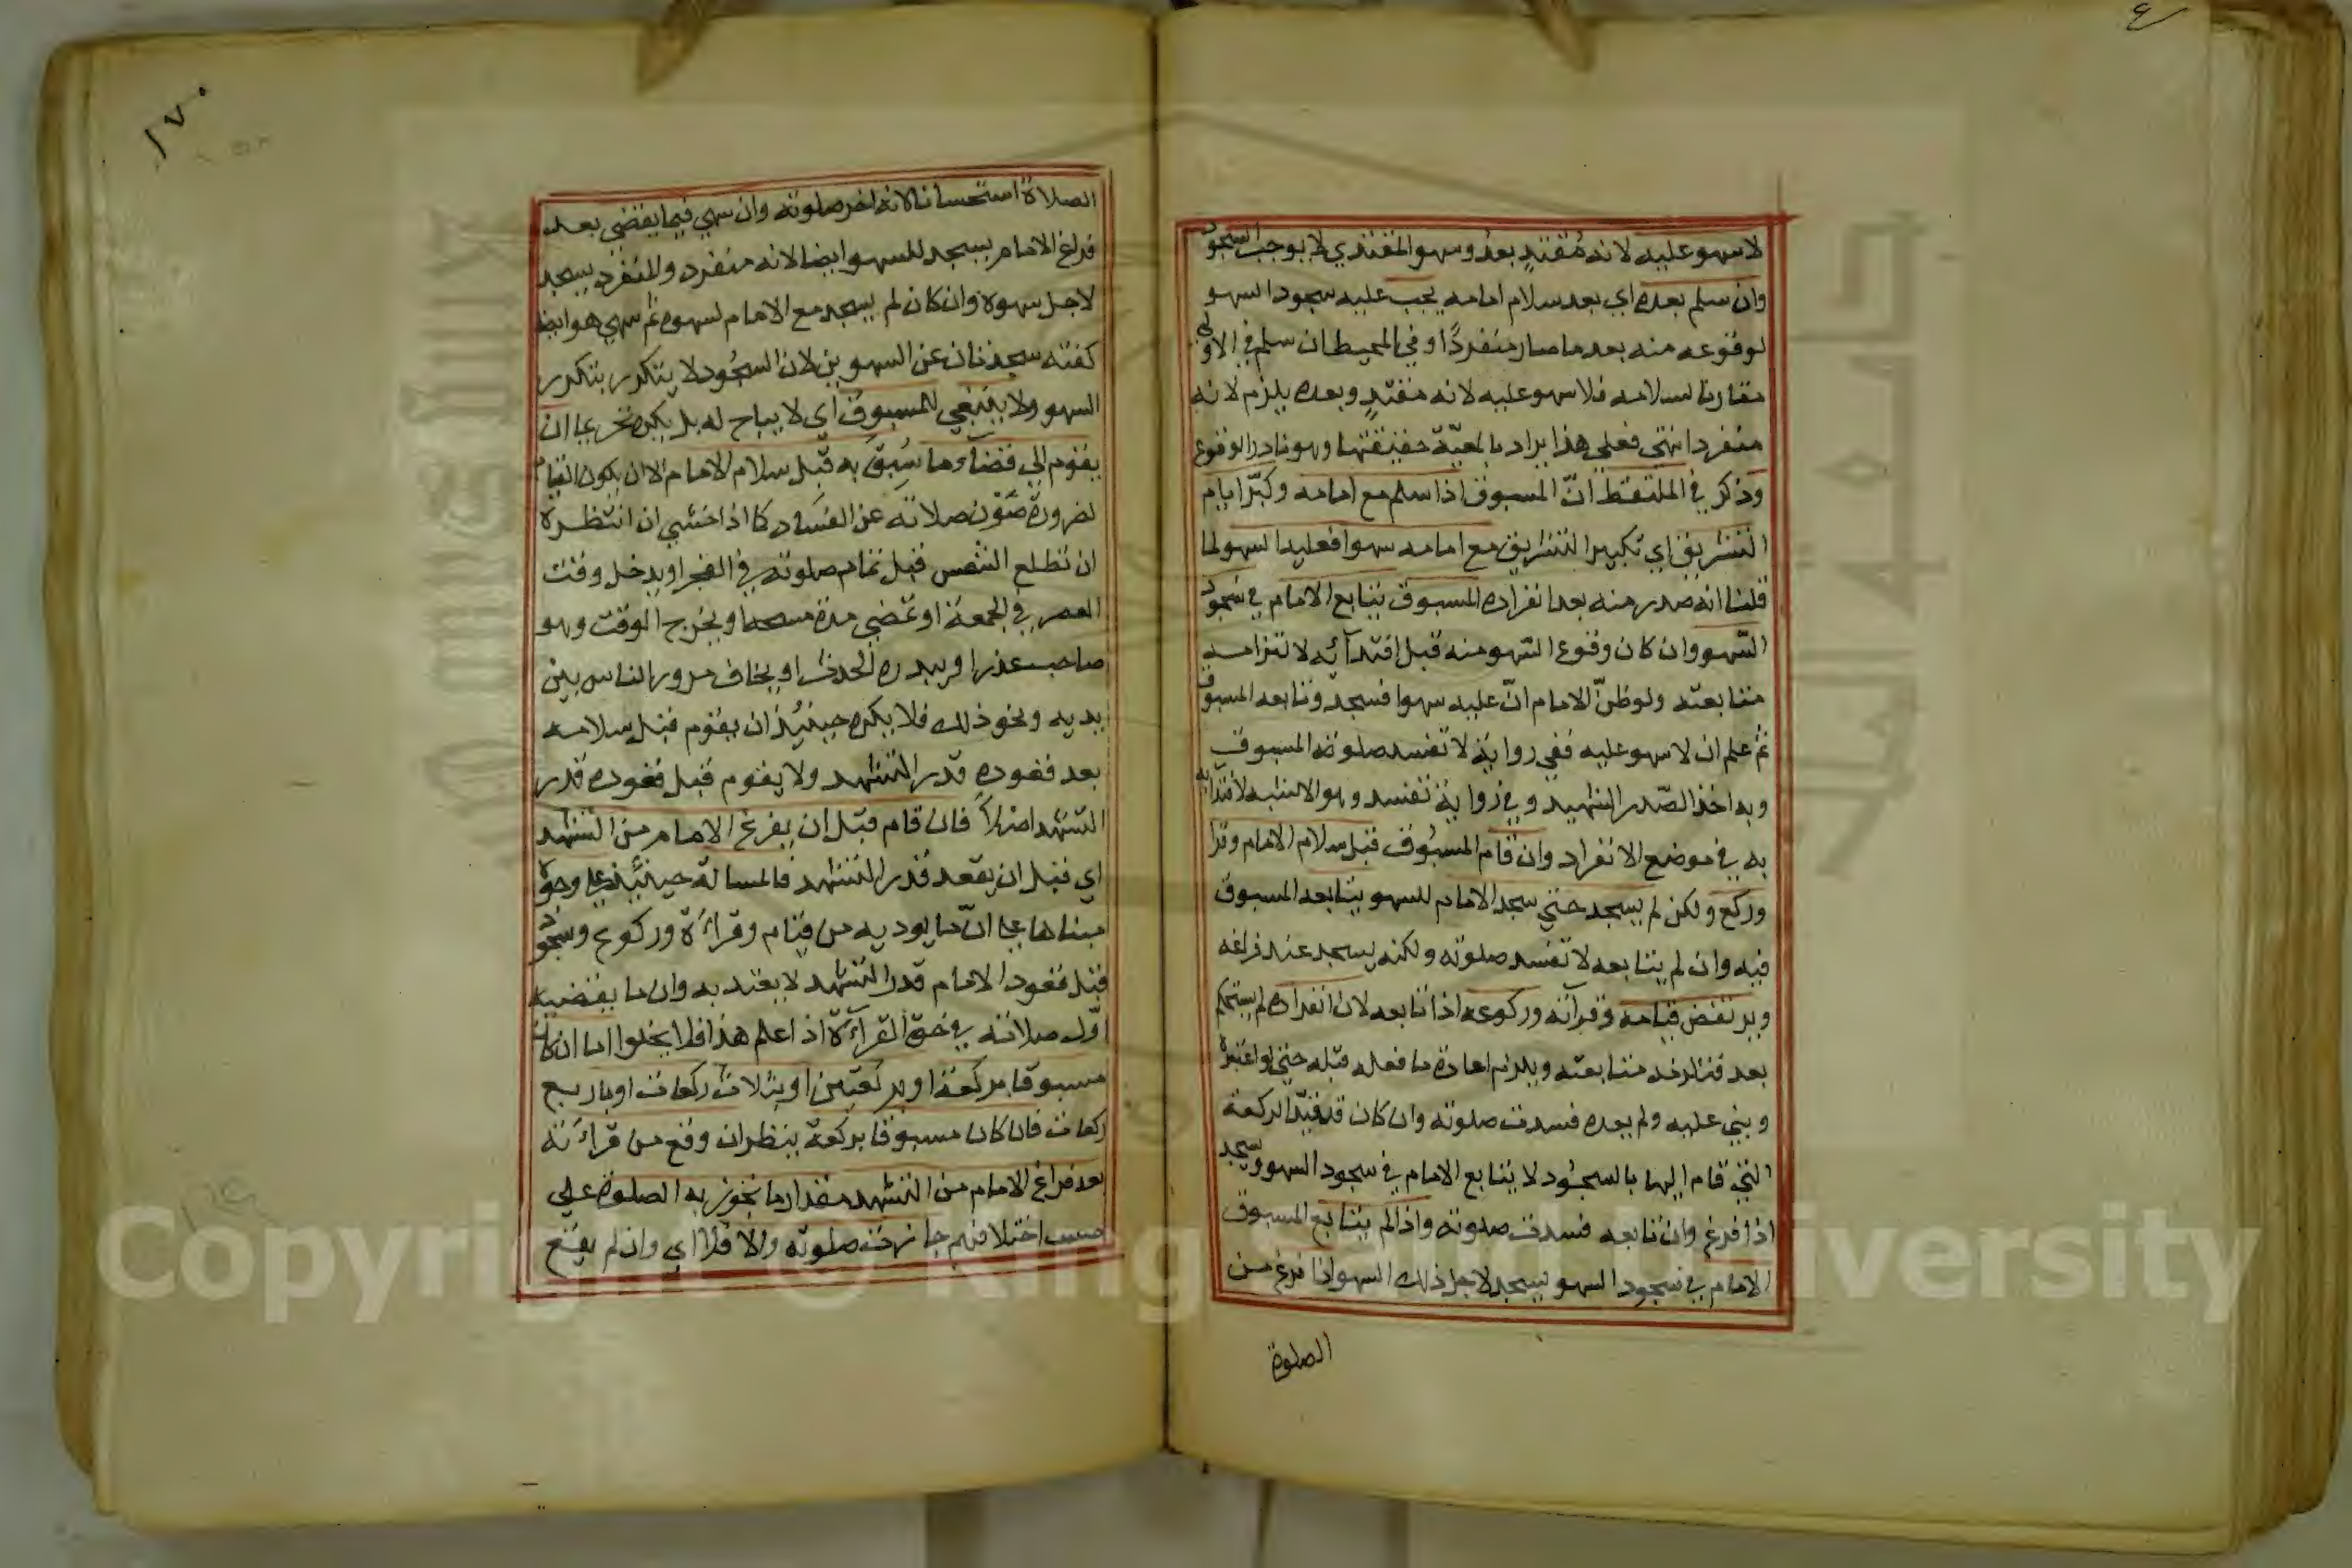 لا سهو عليه لانه مُقتدٍ بعدُ وسهو المقتدي لا يوجب السجود
وان سلم بعده اي بعد سلام امامه يجب عليه سجود السهو
لوقوعه منه بعد ما صار منفردًا وفي المحيط ان سلم في الاولى
مقارنا لسلامه فلا سهو عليه لانه مقتدٍ وبعده يلزم لانه
منفردا نتهى فعلى هذا يراد بالمعيّة حقيقتها وهو نادر الوقوع
وذكر في الملتقط انّ المسبوق اذا سلم مع امامه وكبّر ايام
التشريق اي تكبير التشريق مع امامه سهوا فعليه السهو لما
قلنا انه صدر منه بعد انفراده المسبوق يتابع الامام في سجود
السّهو وان كان وقوع السّهو منه قبل اقتدآئه لالتزامه
متابعته ولو ظنّ الامام انّ عليه سهوا فسجد وتابعه المسبوق
ثم علم ان لا سهو عليه ففي رواية لا تفسد صلوته المسبوق
وبه اخذ الصّدر الشهيد وفي رواية تفسد وهو الاشبه لاقتدائه
به في موضع الانفراد وان قام المسبُوق قبل سلام الامام وقرا
وركع ولكن لم يسجد حتى سجد الامام للسهو يتابعه المسبوق
فيه وان لم يتابعه لا تفسد صلوته ولكنه يسجد عند فراغه
ويرتفض قيامه وقرآته وركوعه اذا تابعه لان انفراده لم يستحكم
بعد فتلزمه متابعته ويلزم اعادة ما فعله قبله حتى لو اعتبره
وبنى عليه ولم يعده فسدت صلوته وان كان قد قيّد الركعة
التي قام اليها بالسجُود لا يتابع الامام في سجود السهو ويسجد
اذا فرغ وان تابعه فسدت صلوته واذا لم يتابع المسبوق
الامام في سجود السهو يسجد لاجل ذلك السهو اذا فرغ من
الصلوة
١٧٠
الصلاة استحسانا لانه اخر صلوته وان سهى فيما يقضي بعد
فراغ الامام يسجد للسهو ايضا لانه منفرد والمنفرد يسجد
لاجل سهوه وان كان لم يسجد مع الامام لسهوه ثم سهى هو ايضا
كفته سجدتان عن السهوين لان السجُود لا يتكرر بتكرر
السهو ولا ينبغي للمسبوق اي لا يباح له بل يكره تحريما ان
يقوم الى قضآء ما سُبِقَ به قبل سلام الامام الا ان يكون القيام
لضرورة صَوْن صلاته عن الفسَاد كما اذا خشي ان انتظره
ان تطلع الشمس قبل تمام صلوته في الفجر او يدخل وقت
العصر في الجمعة او تمضي مدة مسحه او يخرج الوقت وهو
صاحب عذر او يبدره الحدث او يخاف مرور الناس بين
يديه ونحو ذلك فلا يكره حينئذ ان يقوم قبل سلامه
بعد قعوده قدر التشهد ولا يقوم قبل قعوده قدر
التشهد اصلاً فان قام قبل ان يفرغ الامام من التشهد
اي قبل ان يقعد قدر التشهد فالمسالة حينئذ على وجوهٍ
مبناها على انّ ما يوديه من قيام وقراءة وركوع وسجود
قبل قعود الامام قدر التشهد لا يعتد به وان ما يقضيه
اوّل صلاته في حق القرآءة اذا علم هذا فلا يخلوا اما ان كان
مسبوقا بركعة او بركعتين او بثلاث ركعات او باربع
ركعات فان كان مسبوقا بركعة ينظر ان وقع من قراءته
بعد فراغ الامام من التشهد مقدار ما تجوز به الصلوة على
حسب اختلافهم جازت صلوته والا فلا اي وان لم يقع
Copyright © King Saud University